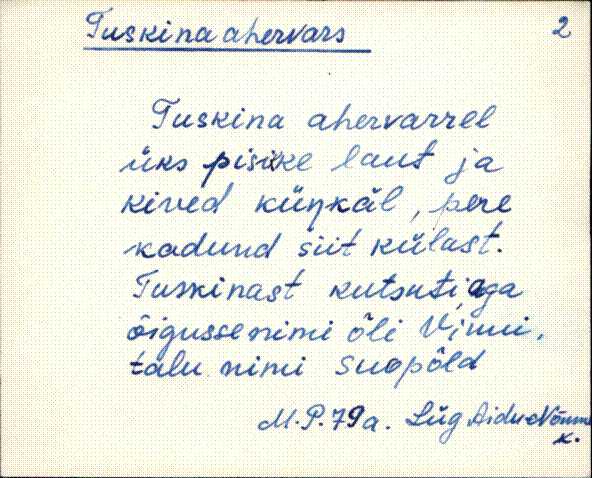 Tuskina ahervars
2
Tuskina ahervarrel
üks pisike laut ja
kived küŋkäl, pere
kadund siit külast.
Tuskinast kutsuti, aga
õigusse nimi õli Vinni,
talu nimi Suopõld
M.P. 79a. Lüg Aidu-Nõmme
k.